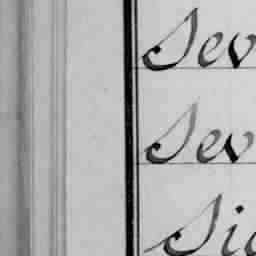 Sev
Sev
Sic